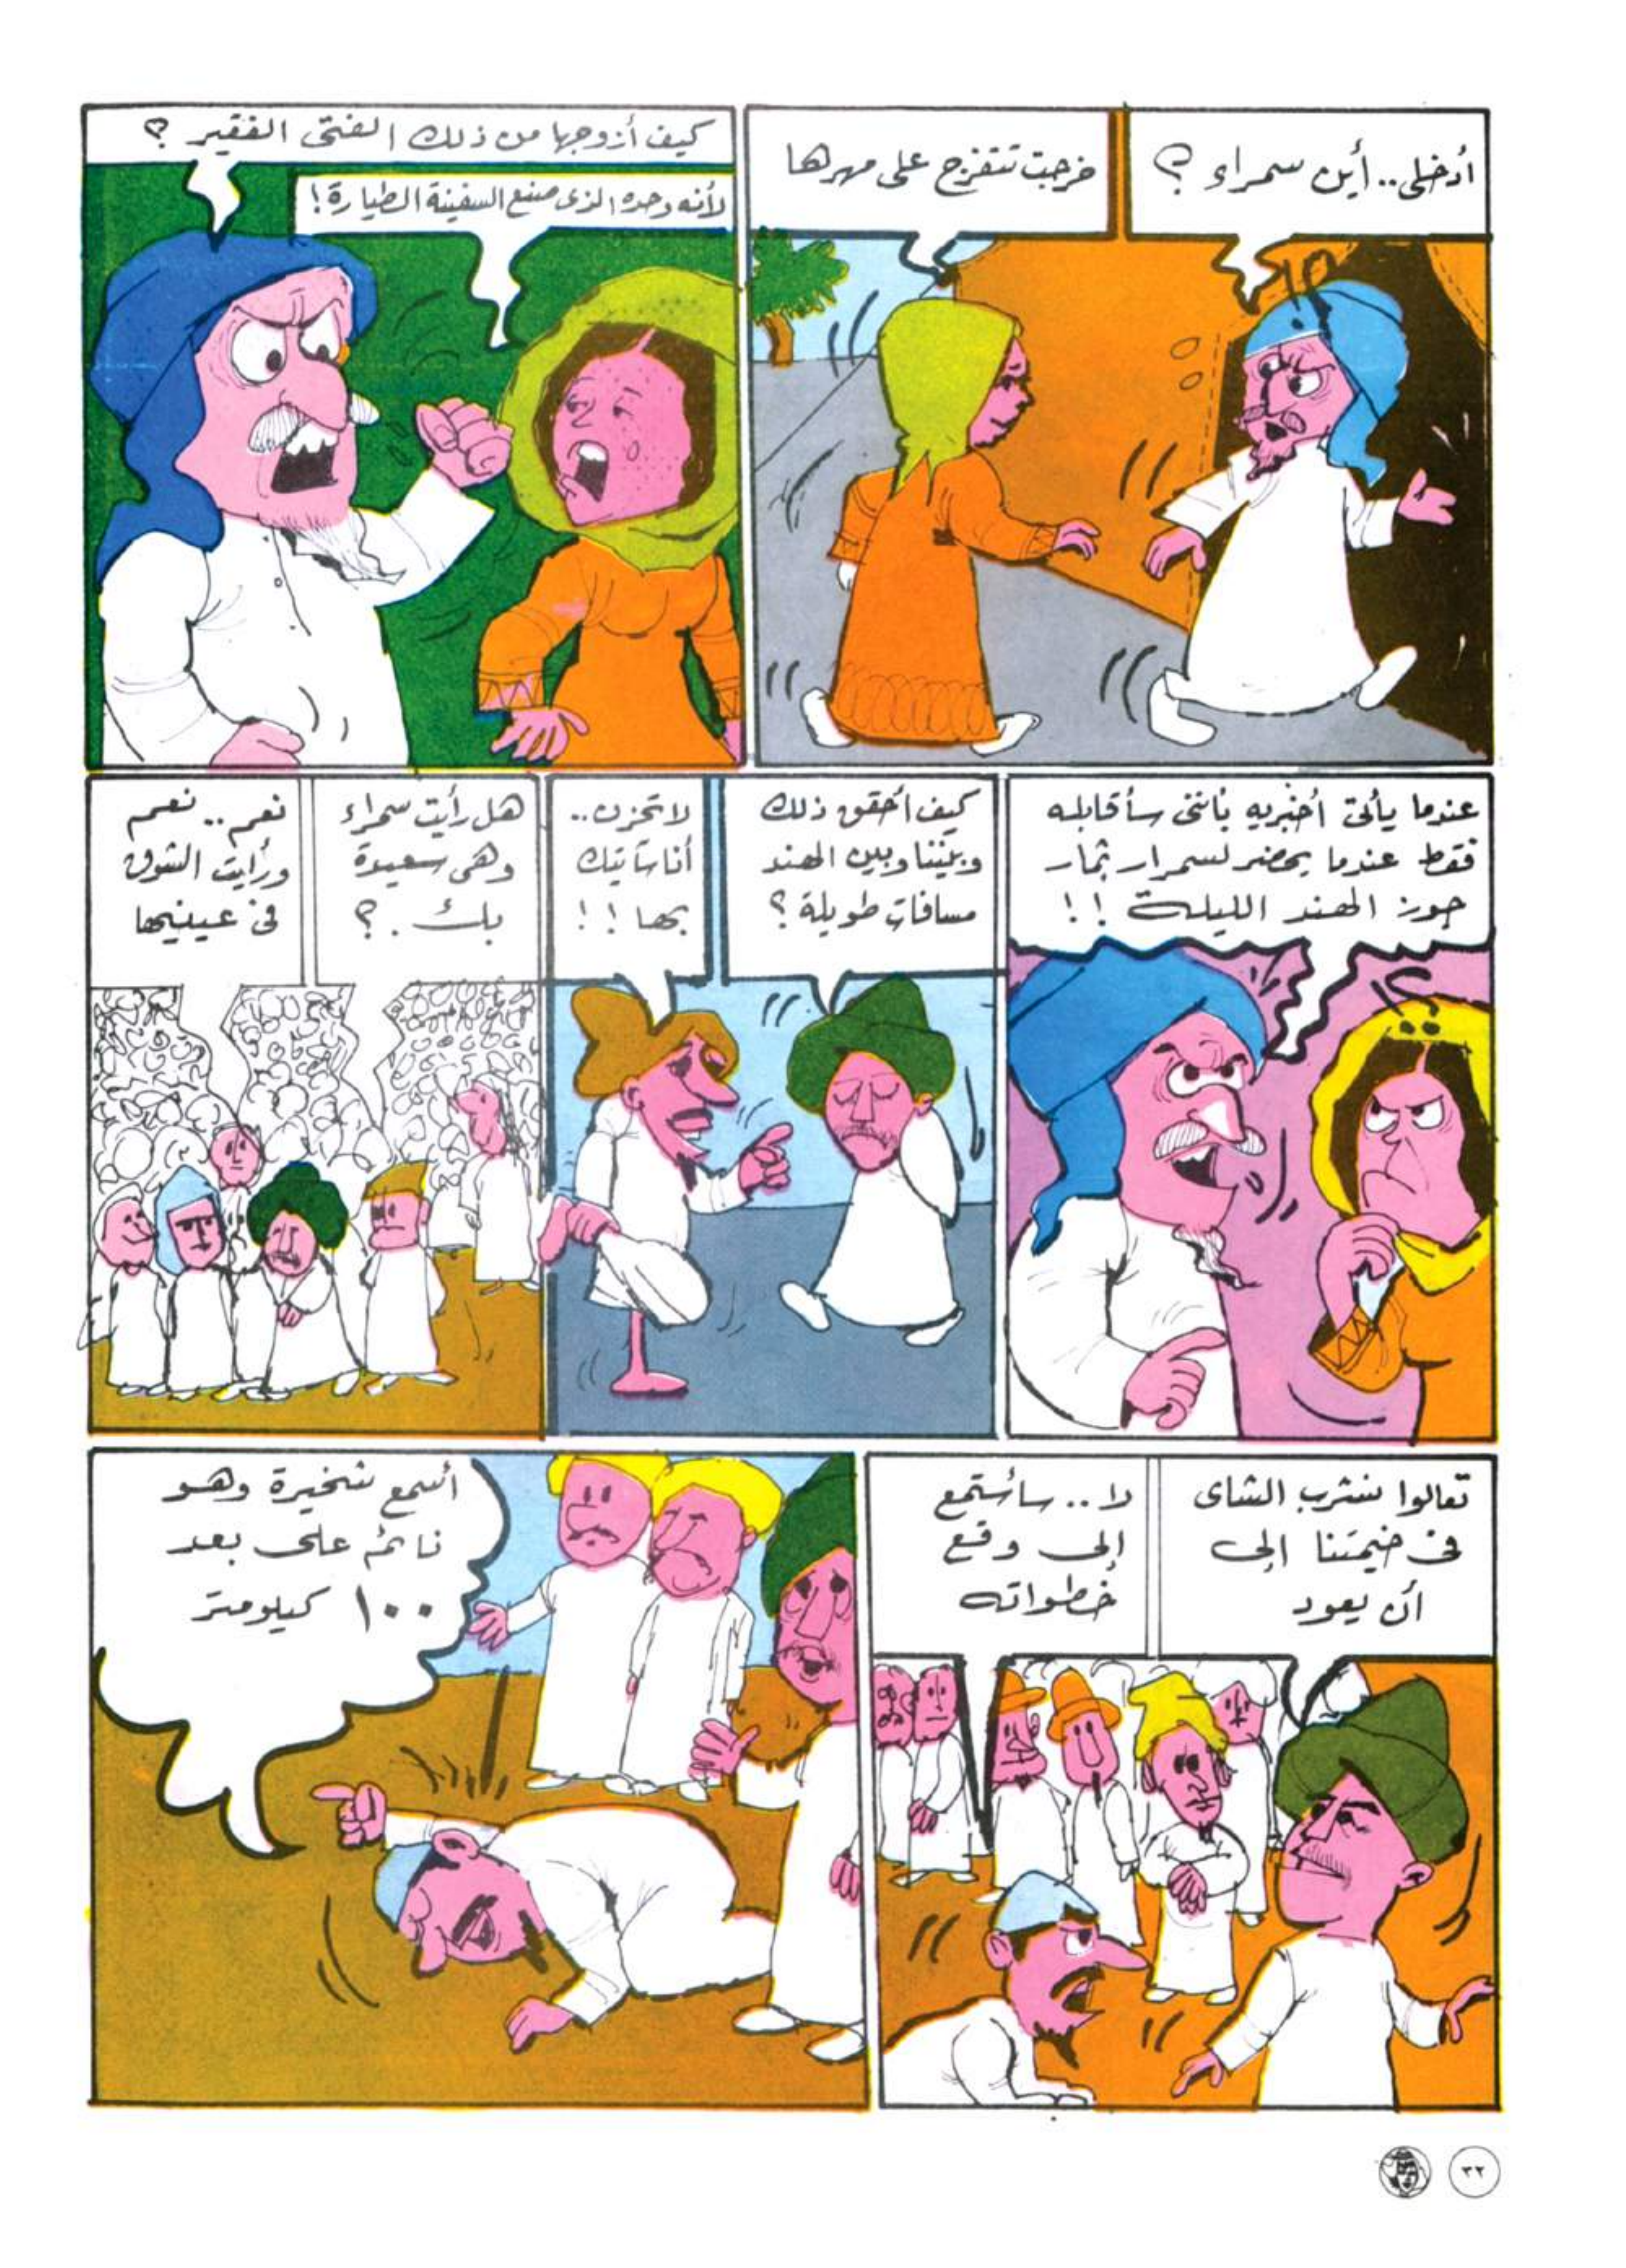 أدخلى.. أين سمراء ؟
خرجت تتفرج على مهرها
كيف أزوجها من ذلك الفتى الفقير ؟
لأنه وحده الذى صنع السفينة الطيارة!
عندما يأتى أخبريه بأننى سأقابله
فقط عندما يحضر لسمرار ثمار
جوز الهند الليلة !!
كيف أحقق ذلك
وبيننا وبين الهند
مسافات طويلة ؟
لا تحزن..
أنا سآتيك
بها !!
هل رأيت سمراء
وهى سعيدة
بك . ؟
نعم .. نعم
ورأيت الشوق
فى عينيها
تعالوا نشرب الشاى
فى خيمتنا إلى
أن يعود
لا .. سأستمع
إلى وقع
خطواته
أسمع شخيرة وهو
نائم على بعد
١٠٠ كيلومتر
٣٢